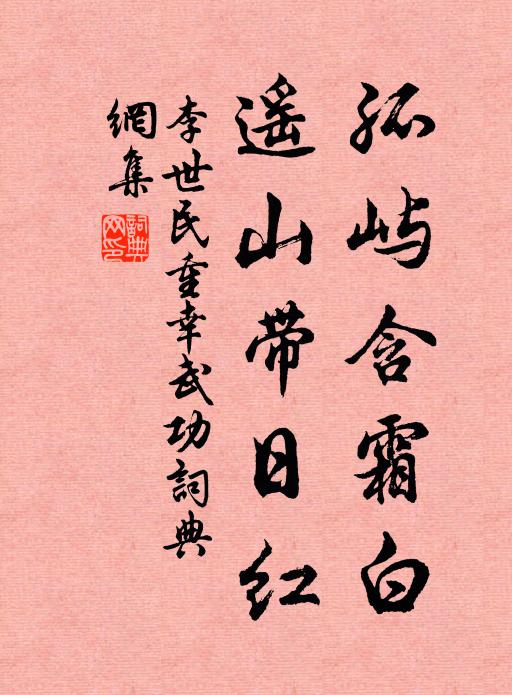 孤屿含霜白
遥山带日红
李世民重幸武功詞典
網集
詞典网印